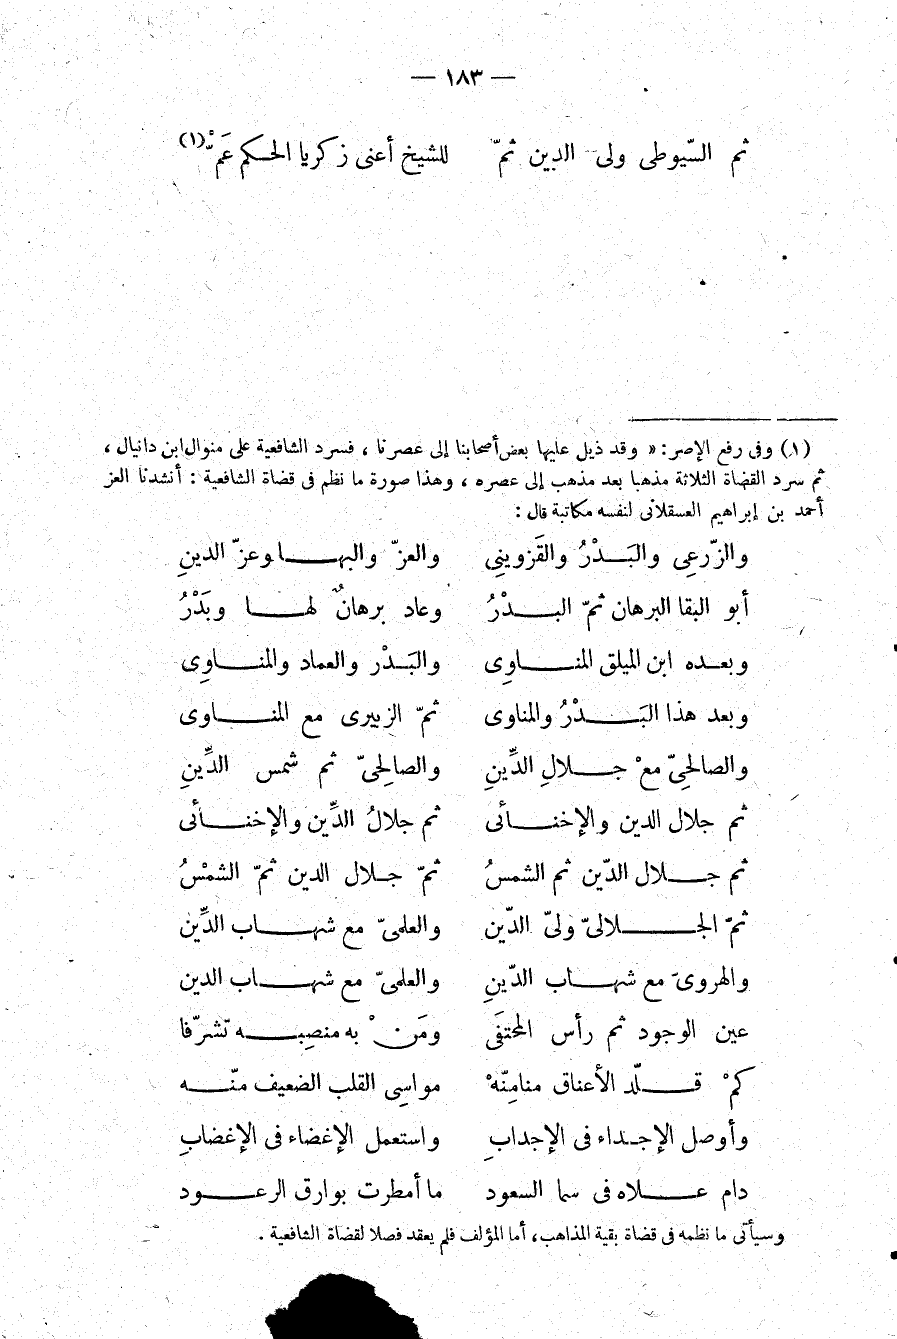 — ١٨٣ —
ثم السّيوطى ولى الدين ثمّ للشيخ أعنى زكريا الحكم عَمّْ(١)
(١) وفى رفع الإصر: « وقد ذيل عليها بعض أصحابنا إلى عصرنا ، فسرد الشافعية على منوال ابن دانيال ،
ثم سرد القضاة الثلاثة مذهبا بعد مذهب إلى عصره ، وهذا صورة ما نظم فى قضاة الشافعية : أنشدنا العز
أحمد بن إبراهيم العسقلانى لنفسه مكاتبة قال :
والزّرعِى والبَدْرُ والقَزوينِى والعزّ والبها وعزّ الدينِ
أبو البقا البرهان ثمّ البدْرُ وعاد برهانٌ لها وبَدْرُ
وبعده ابن الميلق المناوِى والبَدْر والعماد والمناوِى
وبعد هذا البَدْرُ والمناوى ثمّ الزبيرى مع المناوى
والصالحِىّ معْ جلالِ الدِّينِ والصالِحىّ ثم شمس الدِّينِ
ثم جلال الدين والإخنائى ثم جلالُ الدِّين والإخنائى
ثم جلال الدّين ثم الشمسُ ثمّ جلال الدين ثمّ الشمْسُ
ثمّ الجلالىّ ولىّ الدّين والعلمىّ مع شهاب الدِّين
والهروىَ مع شهاب الدّينِ والعلمىّ مع شهاب الدين
عين الوجود ثم رأس المحتفَى ومَنْ به منصِبه تشرّفا
كمْ قلّد الأعناق منامِنّهْ مواسِى القلب الضعيف منّه
وأوصل الإجداء فى الإجدابِ واستعمل الإغضاء فى الإغضابِ
دام علاه فى سما السعود ما أمطرت بوارق الرعود
وسيأتى ما نظمه فى قضاة بقية المذاهب، أما المؤلف فلم يعقد فصلا لقضاة الشافعية .